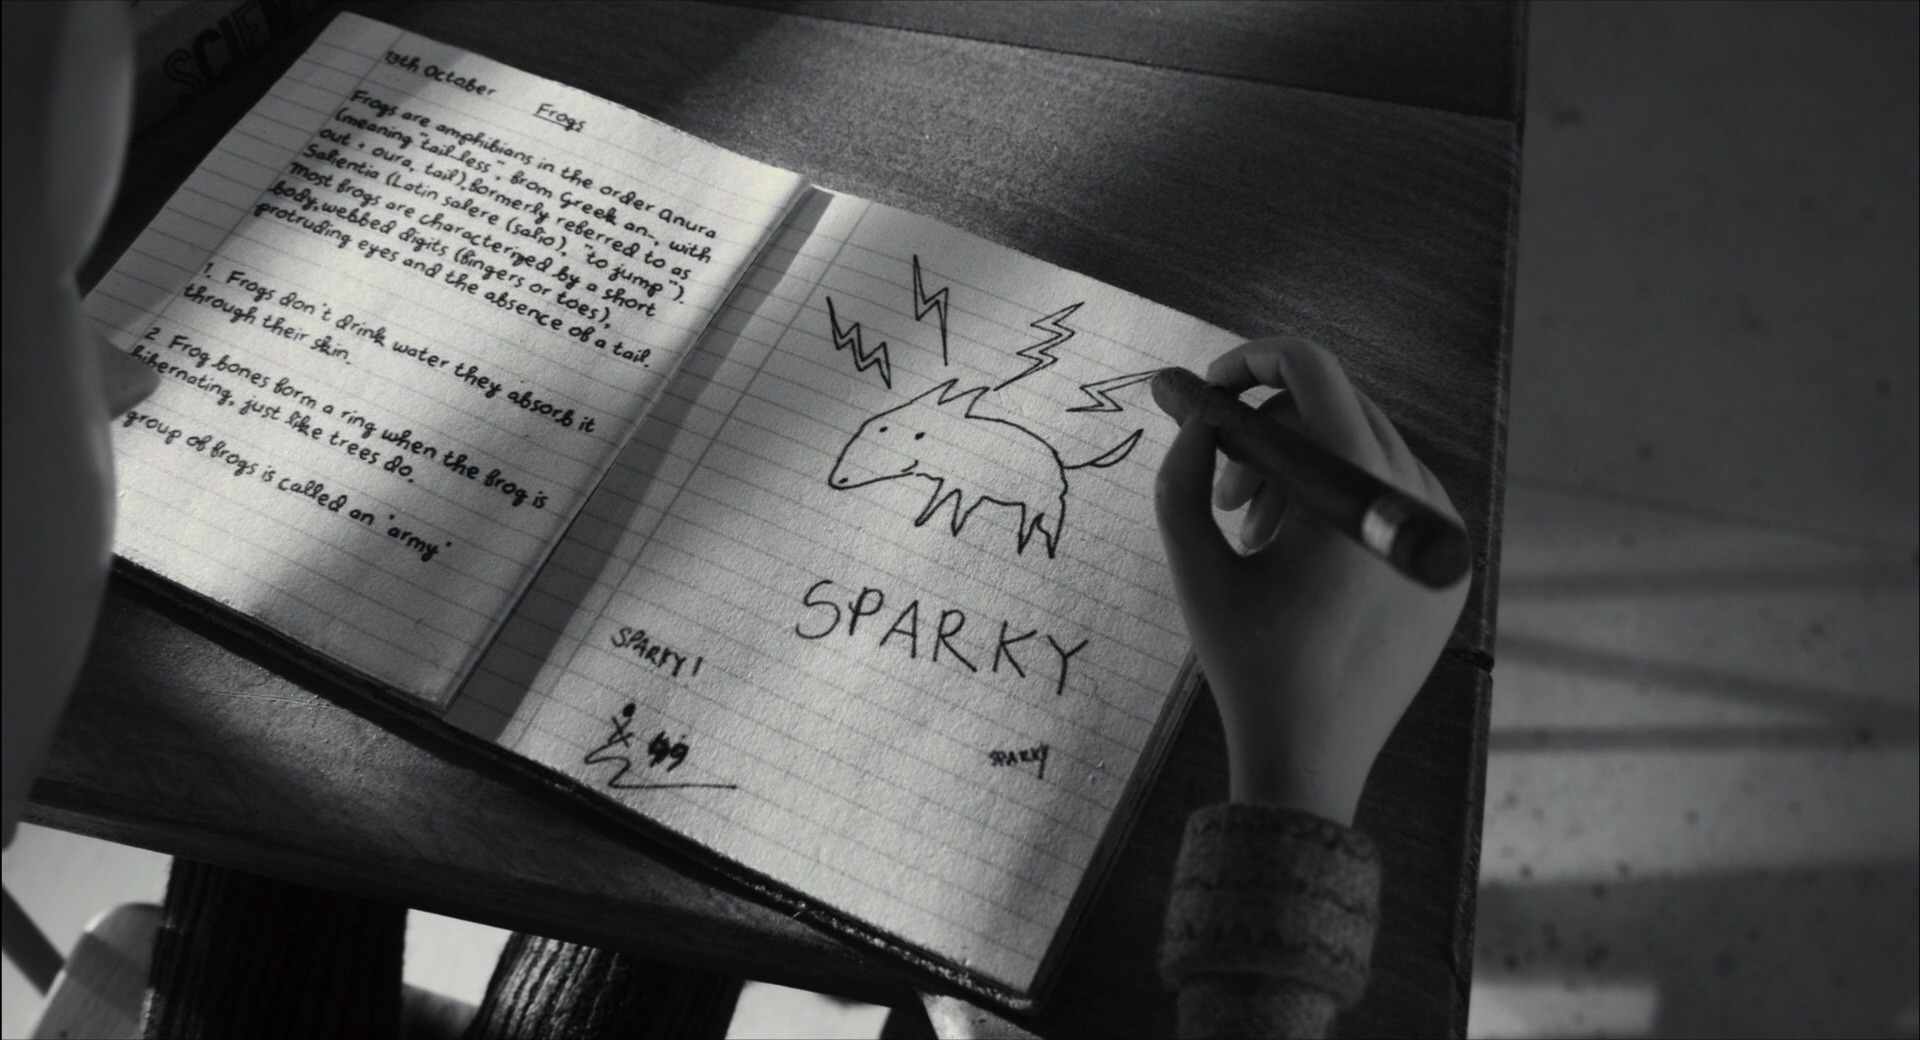 SCIEN
13th October
Frogs
Frogs are amphibians in the order Anura
(meaning "tail-less", from Greek an-, with
out + oura, tail), formerly referred to as
Salientia (Latin salere (salio), "to jump").
most frogs are characterized by a short
body, webbed digits (fingers or toes),
protruding eyes and the absence of a tail.
1. Frogs don't drink water they absorb it
through their skin.
2 Frog bones form a ring when the frog is
hibernating, just like trees do.
group of frogs is called an "army"
SPARKY
SPARKY!
SPARKY